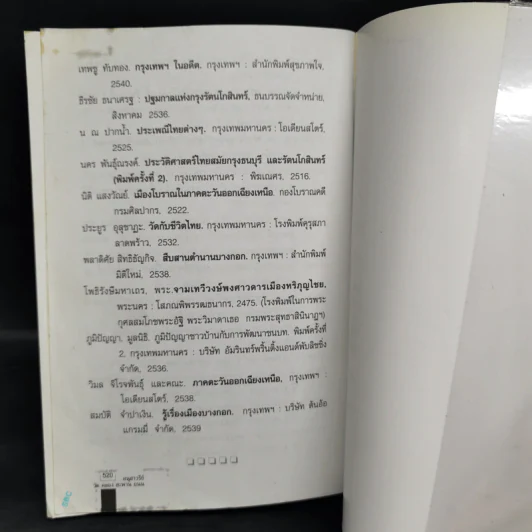 เทพชู ทับทอง. กรุงเทพฯ ในอดีต. กรุงเทพฯ : สำนักพิมพ์สุขภาพใจ,
2540.
ธีรชัย ธนาเศรษฐ : ปฐมกาลแห่งกรุงรัตนโกสินทร์, ธนบรรณจัดจำหน่าย,
สิงหาคม 2536.
น ณ ปากน้ำ. ประเพณีไทยต่างๆ. กรุงเทพมหานคร : โอเดียนสโตร์,
2525.
นคร พันธุ์ณรงค์. ประวัติศาสตร์ไทยสมัยกรุงธนบุรี และรัตนโกสินทร์
(พิมพ์ครั้งที่ 2). กรุงเทพมหานคร : พิฆเณศร, 2516.
นิติ แสงวัณย์. เมืองโบราณในภาคตะวันออกเฉียงเหนือ. กองโบราณคดี
กรมศิลปากร, 2522.
ประยูร อุลุชาฎะ. วัดกับชีวิตไทย. กรุงเทพมหานคร : โรงพิมพ์คุรุสภา
ลาดพร้าว, 2532.
พลาดิศัย สิทธิธัญกิจ. สืบสานตำนานบางกอก. กรุงเทพฯ : สำนักพิมพ์
มิติใหม่, 2538.
โพธิรังษีมหาเถร, พระ. จามเทวีวงษ์พงศาวดารเมืองหริภุญไชย.
พระนคร : โสภณพิพรรฒธนากร, 2475. (โรงพิมพ์ในการพระ
กุศลสมโภชพระอัฐิ พระวิมาดาเธอ กรมพระสุทธาสินินาฏฯ)
ภูมิปัญญา. มูลนิธิ. ภูมิปัญญาชาวบ้านกับการพัฒนาชนบท. พิมพ์ครั้งที่
2. กรุงเทพมหานคร : บริษัท อัมรินทร์พริ้นติ้งแอนด์พับลิชชิ่ง
จำกัด, 2536.
วิมล จิโรจพันธุ์ และคณะ. ภาคตะวันออกเฉียงเหนือ, กรุงเทพฯ :
โอเดียนสโตร์, 2538.
สมบัติ จำปาเงิน. รู้เรื่องเมืองบางกอก. กรุงเทพฯ : บริษัท ต้นอ้อ
แกรมมี่ จำกัด, 2539
520